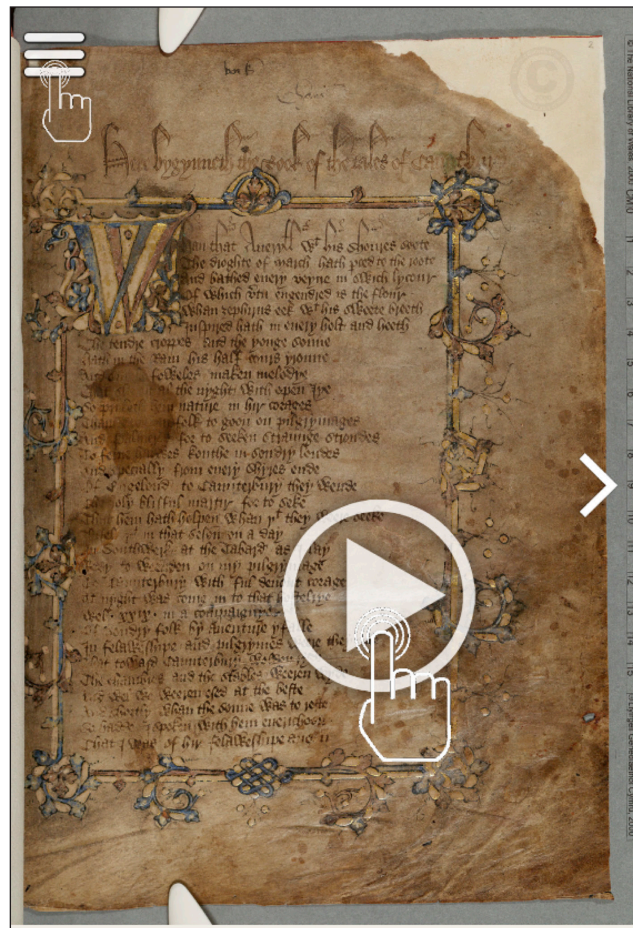 Here bygynneth the Book of the tales of Caunterbury
Whan that Aueryll wᵗ his shoures soote
The droghte of March hath perced to the roote
And bathed euery veyne in swich lycour
Of which vertu engendred is the flour
Whan zephirus eek wᵗ his sweete breeth
Inspired hath in euery holt and heeth
The tendre croppes and the yonge sonne
Hath in the Ram his half cours yronne
And foweles maken melodye
That al the nyght with open Iye
So priketh hem nature in hir corages
folk to goon on pilgrymages
And for to seeken straunge strondes
To ferne halwes kouthe in sondry londes
And specially from euery shyres ende
Of Engelond to Caunterbury they wende
The holy blisful martir for to seke
That hem hath holpen whan þᵗ they weere seeke
in that seson on a day
In Southwerk at the Tabard as I lay
Redy to weenden on my pilgrymage
To Caunterbury with ful deuout corage
At nyght was come in to that hostelrye
Wel xxix in a compaignye
Of sondry folk by auenture yfalle
In felaweshipe and pilgrymes weere they
That toward Caunterbury wolden
The chambres and the stables weeren wyde
And wel we weeren esed at the beste
And shortly whan the sonne was to reste
So hadde I spoken with hem euerichoon
That I was of hir felaweshipe anon